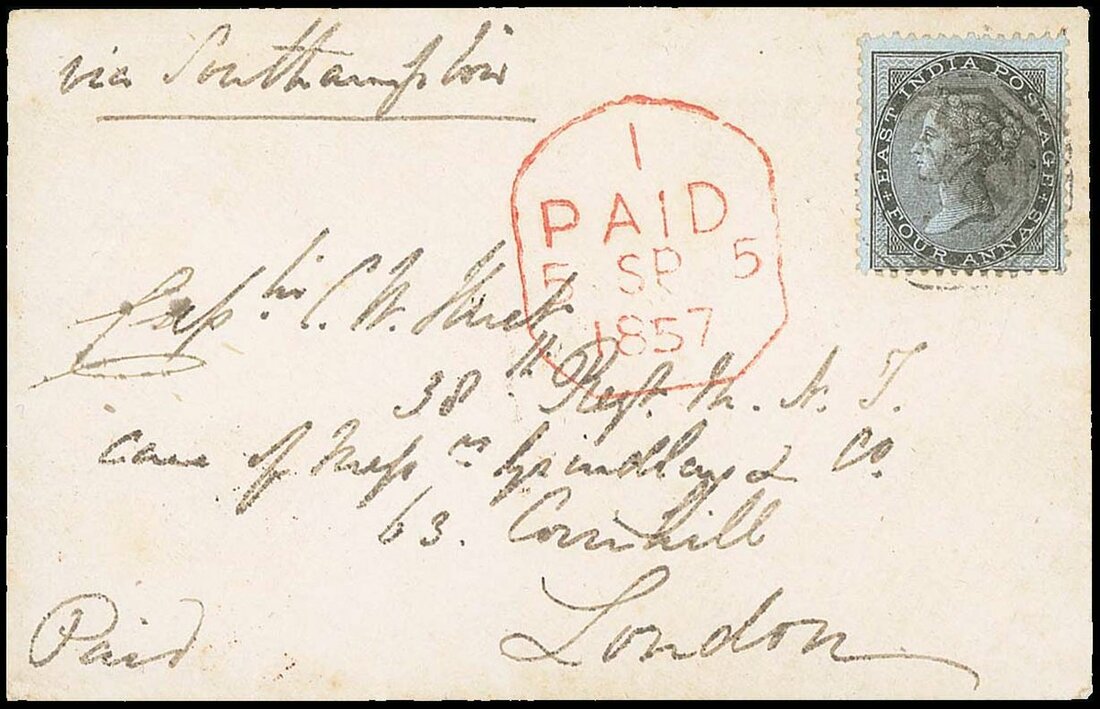 via Southampton
EAST INDIA POSTAGE
FOUR ANNAS
1
PAID
5 SP 5
1857
Captn C. W.
38th Regt M. N. I.
care of Messrs Grindlay & Co
63. Cornhill
London
Paid